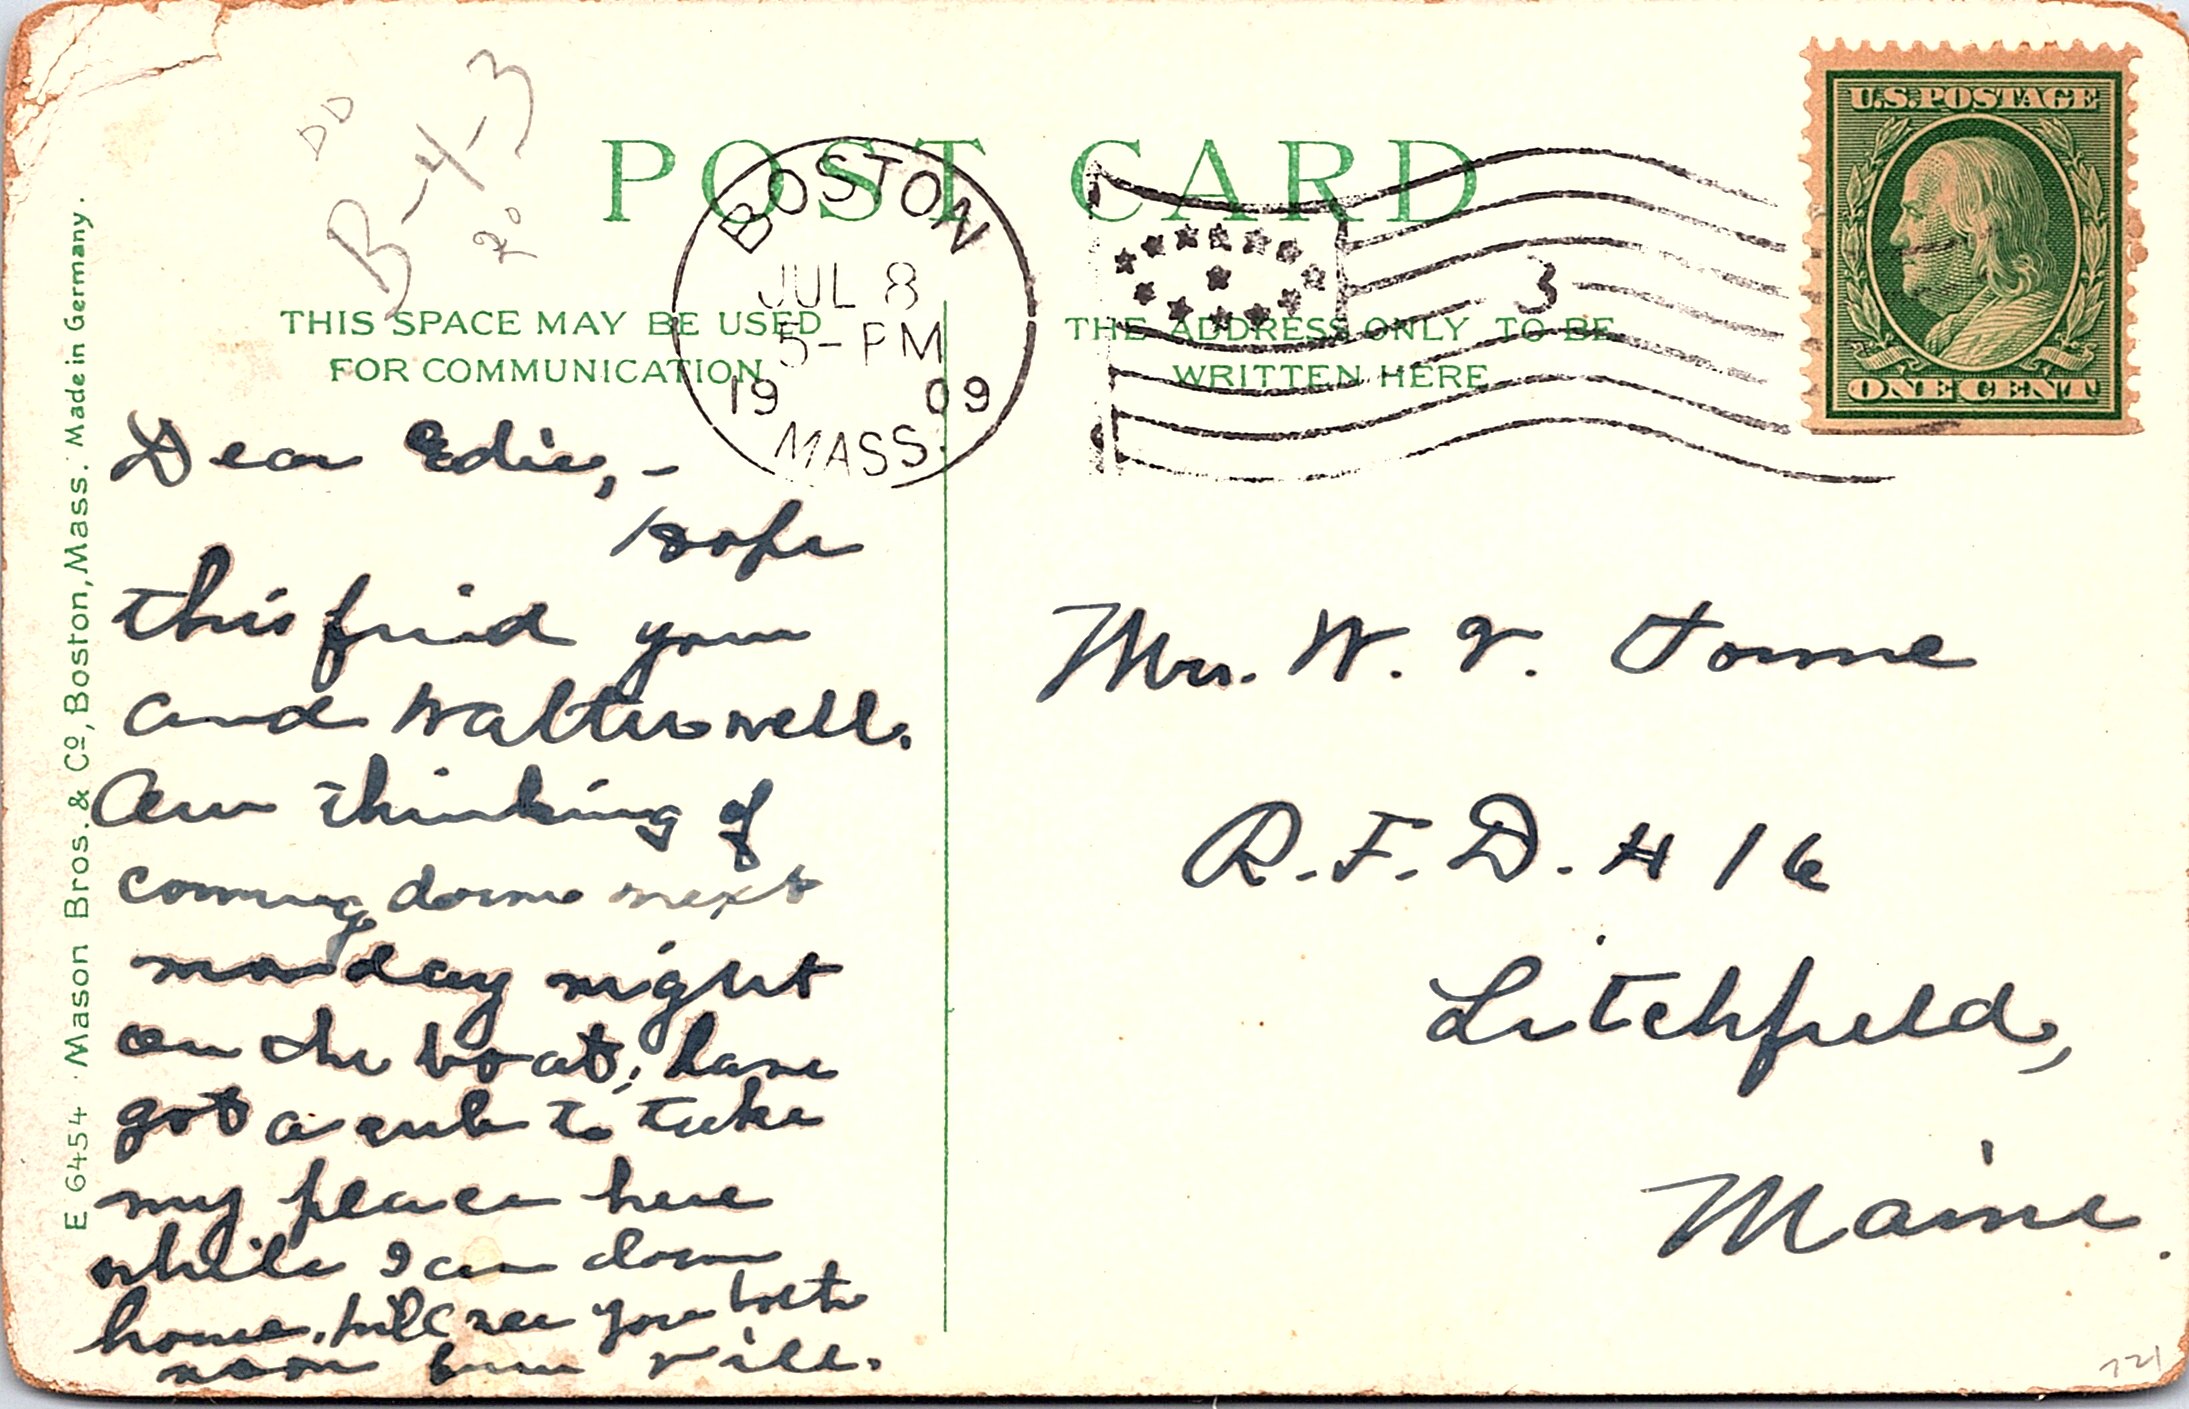 B-4-3
POST CARD
BOSTON
JUL 8
5-PM
1909
MASS.
3
U.S. POSTAGE
ONE CENT
THIS SPACE MAY BE USED
FOR COMMUNICATION
THE ADDRESS ONLY TO BE
WRITTEN HERE
E 6454 Mason Bros. & Co., Boston, Mass. Made in Germany.
Dear Edie,-
Hope
this find you
and Walter well.
Am thinking of
coming down next
monday night
on the boat, have
got a sub to take
my place here
while I am down
home. will see you both
soon
Mrs. W. V. Towne
R.F.D. # 16
Litchfield,
Maine.
721